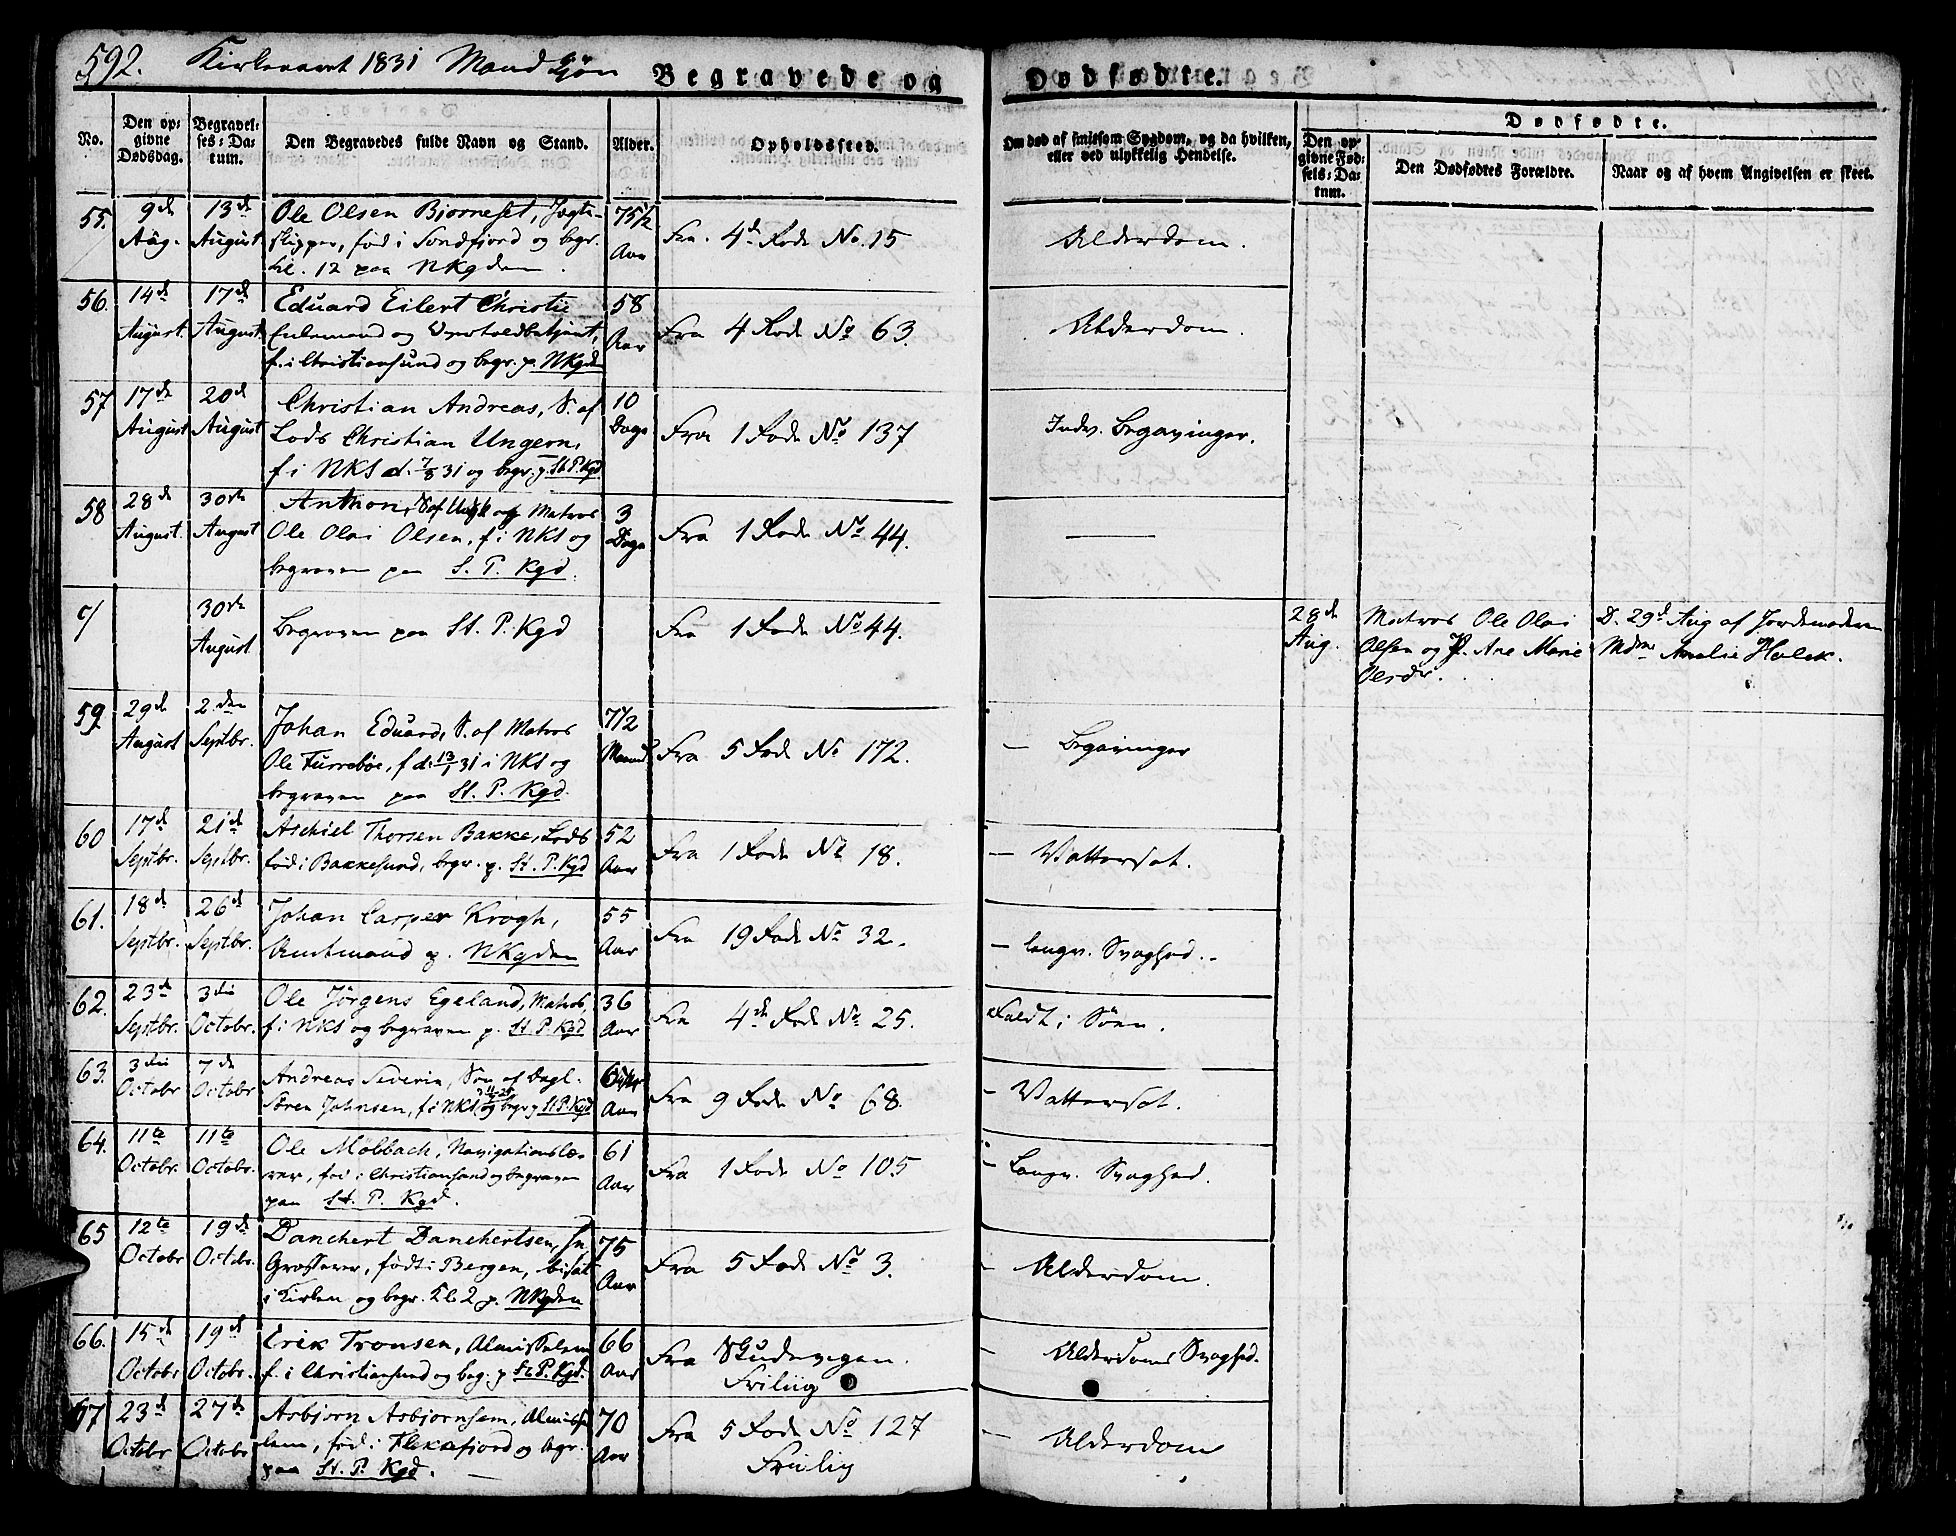 592. Kirkeaaret 1831 Mandkjøn
Begravede og Dødfødte.
No.
Den opgivne Dødsdag.
Begravelses-Datum.
Den Begravedes fulde Navn og Stand.
Alder.
Opholdssted.
Om død af smitsom Sygdom, og da hvilken, eller ved ulykkelig Hendelse.
Dødfødte.
Den opgivne Fødsels-Datum.
Den Dødfødtes Forældre.
Naar og af hvem Angivelsen er skeet.
55. 9de Aug. 13de August
Ole Olsen Bjorneset, Jagt-
skipper, fød i Sondfjord og begr.
kl. 12 paa NKgden.
75 1/2 Aar
Fra. 4de Rode No. 15
Alderdom.
56. 14de August. 17de August
Eduard Eilert Christie
Enkemand og
f. i Christiansund og begr. p. NKgden
58 Aar
Fra 4 Rode No 63.
Alderdom.
57 17de August 20de August
Christian Andreas, S. af
Lods Christian Ungern,
f i NKS d. 7/8 31 og begr. p. St P. Kgd
10 Dage
Fra 1 Rode No 137
Indv. Begavinger.
58 28de August. 30te August
Anthon, S af og Matros
Ole Olai Olsen, f. i NKS og
begraven paa S. P. Kgd.
3 Dage
Fra 1 Rode No 44.
30te August
Begraven paa St. P. Kgd
Fra 1 Rode No 44.
28de Aug.
Matros Ole Olai
Olsen og P. Ane Marie
D. 29de Aug af Jordemoderen
Mdme Amalie Holck.
59 29de August 2den Septbr.
Johan Eduard, S. af Matros
Ole Furrebøe, f d: 13/1 31 i NKS og
begraven paa St. P. Kgd.
7 1/2 Maaned
Fra 5 Rode No 172.
— Begavinger
60 17de Septbr. 21de Septbr.
Aschiel Thorsen Bakke, Lods
fød i Bakkesund, begr. p. St. P. Kgd
52 Aar
Fra 1 Rode No 18.
— Vattersot.
61. 18de Septbr. 26de Septbr.
Johan Casper Krogh,
Amtmand p. NKgden
55 Aar
Fra 19 Rode No 32.
— langv. Svaghed.
62. 23de Septbr. 3die Octobr.
Ole Jørgens Egeland, Matros,
f. i NKS og begraven p. St. P. Kgd
36 Aar
Fra 4de Rode No 25.
Faldt i Søen.
63. 3die Octobr 7de Octobr.
Andreas Severin, Søn af Dagl.
Søren Johnsen, f i NKS og begr. p St P. Kgd
Aar
Fra 9 Rode No 68.
- Vattersot.
64. 11te Octobr. 11te Octobr.
Ole Møbbach, Navigationslæ-
rer, fød i Christiansand og begraven
paa St. P. Kgd.
61 Aar
Fra 1 Rode No 105
— Langv. Svaghed.
65 12te Octobr 19de Octobr.
Danchert Danchertsen, sn.
Grosserer, født i Bergen, bisat
i Kirken og begr. Kl. 2 p. NKgden
75 Aar
Fra 5 Rode No 3.
- Alderdom.
66. 15de Octobr 19de Octobr.
Erik Tronsen, Almisselem
f. i Christiansund og beg. p St P. Kgd.
66 Aar
Fra Skudevigen.
Friliig
- Alderdoms Svaghed.
67 23de Octobr 27de Octobr.
Asbjorn Asbjornsen, Almisse
lem, fød i Flekkefjord og begr.
paa St. P. Kgd.
70 Aar
Fra 5 Rode No 127
Friliig
— Alderdom